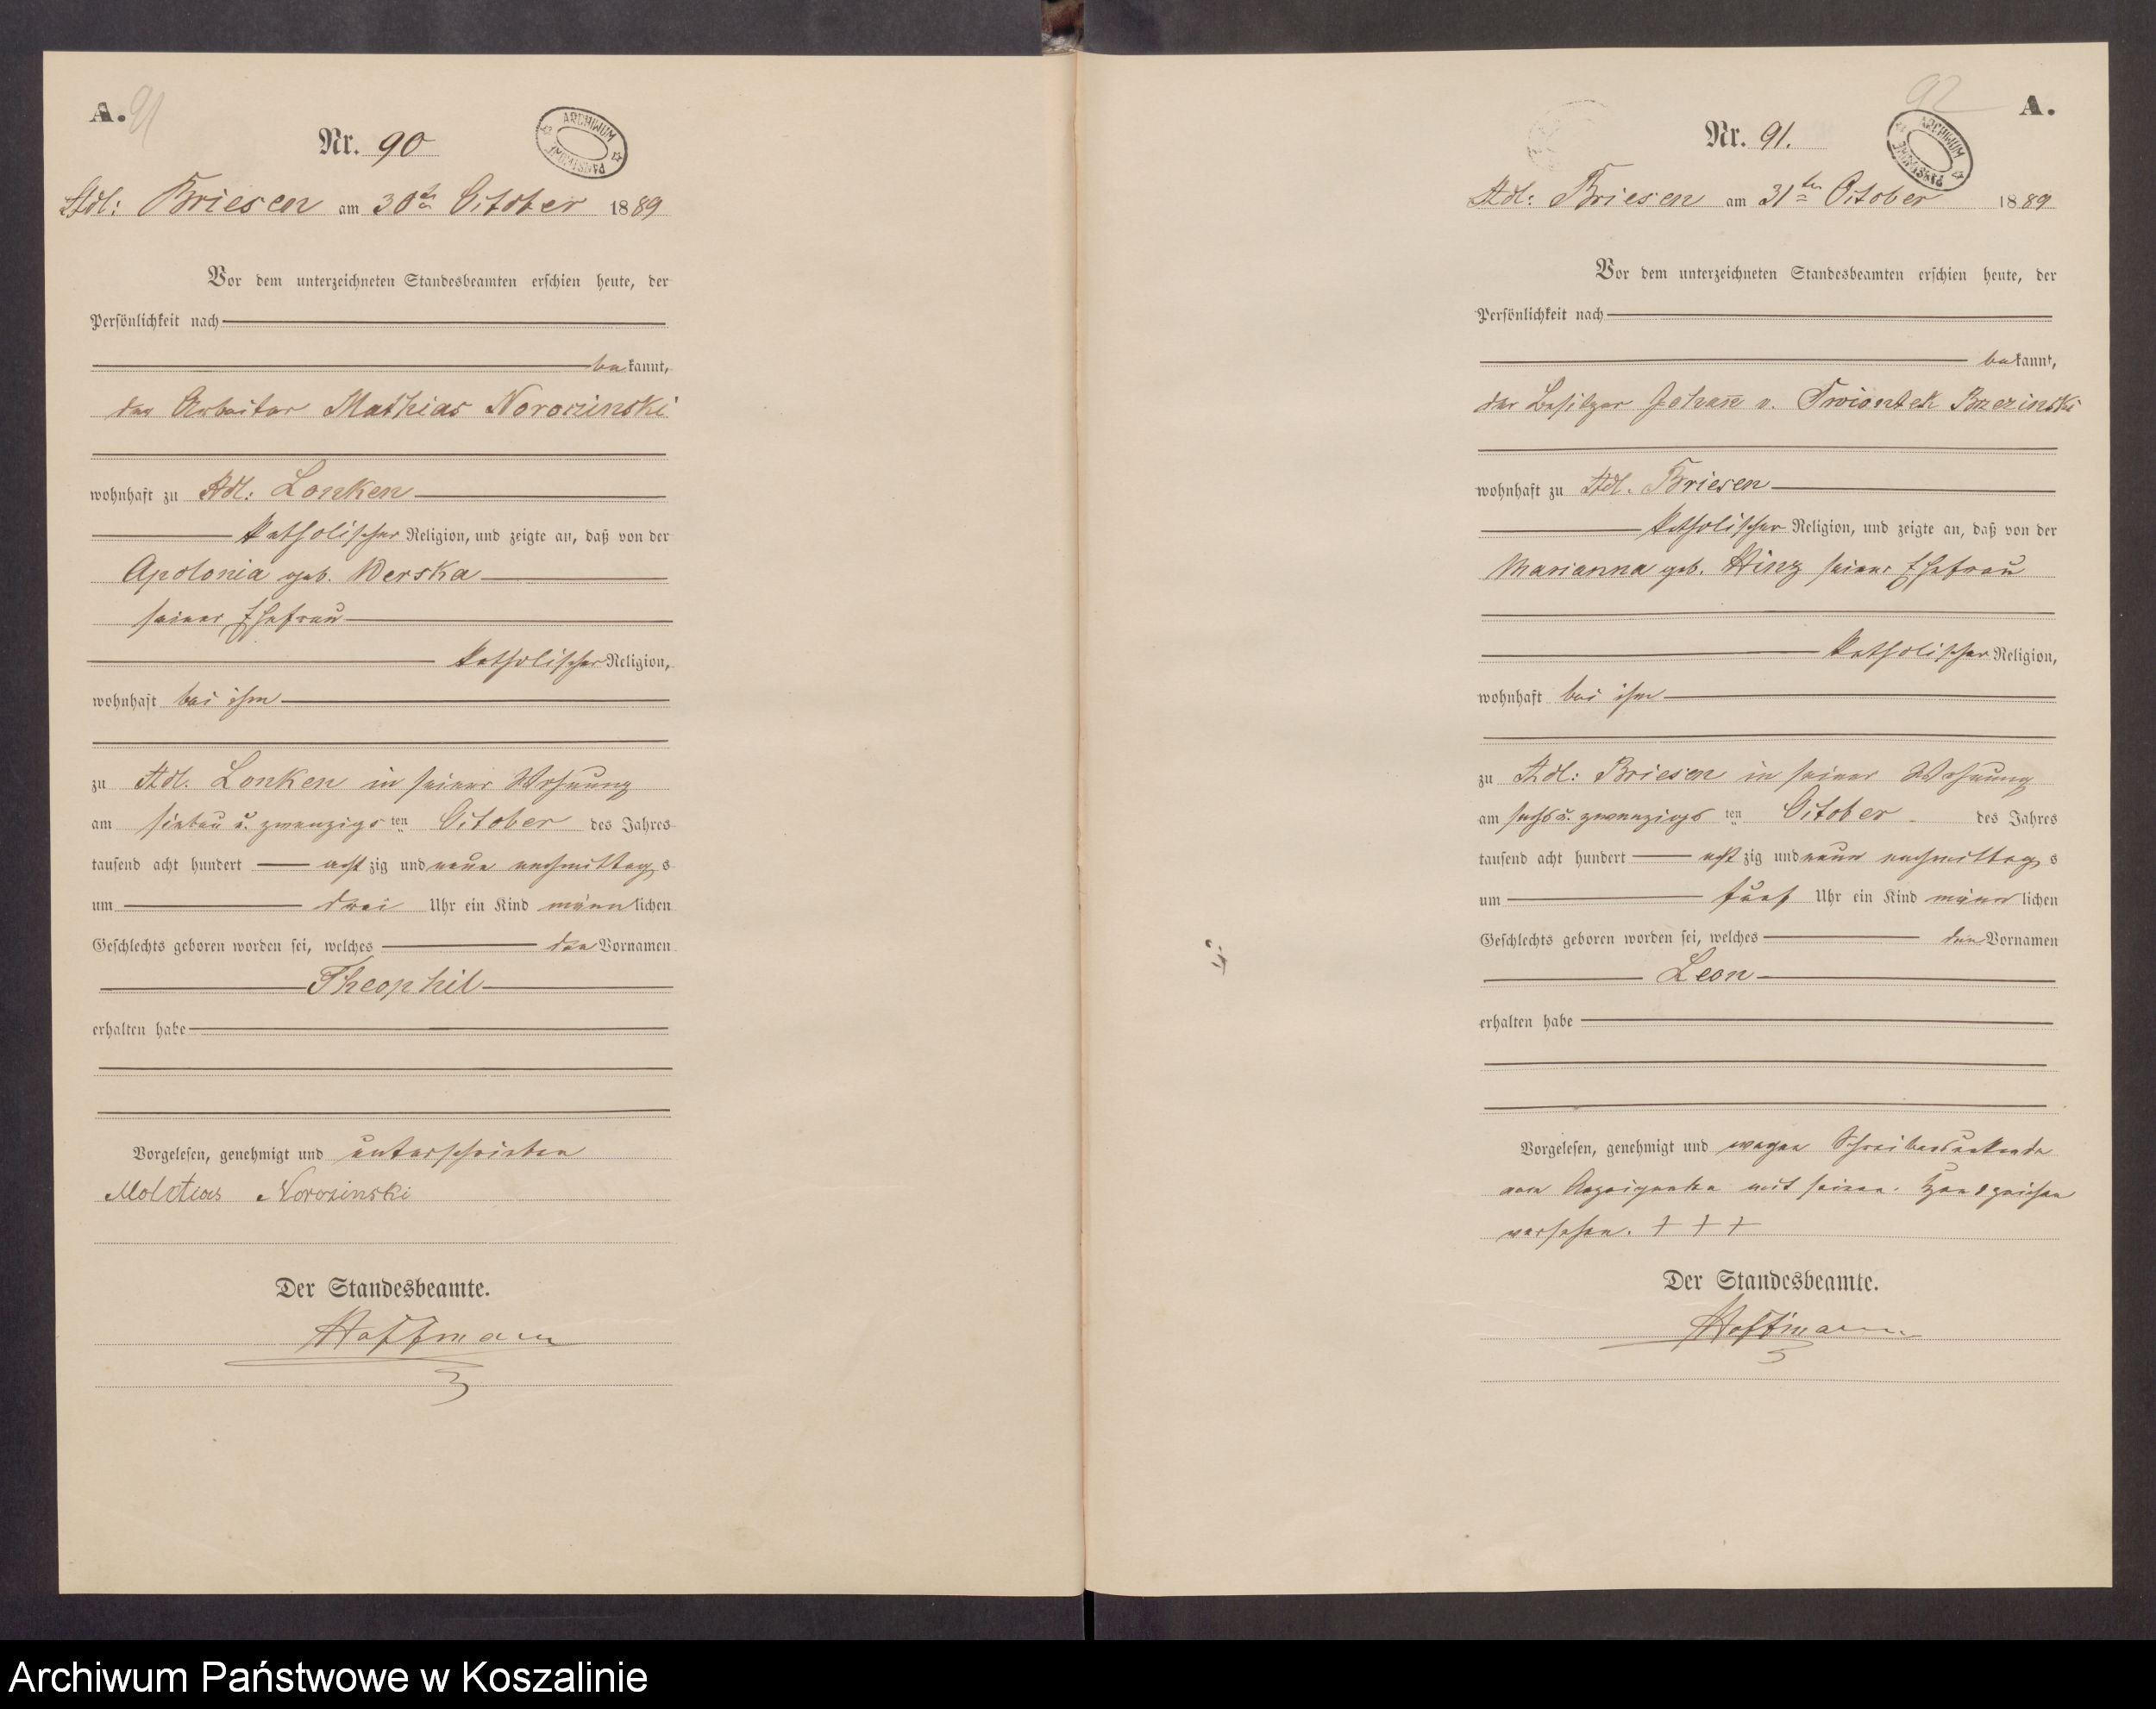 A. 91
Nr. 90
ARCHIWUM PAŃSTWOWE
Adl: Briesen am 30ten October 1889
Vor dem unterzeichneten Standesbeamten erschien heute, der
Persönlichkeit nach
bekannt,
der Arbeiter Mathias
wohnhaft zu Adl: Lonken
katholischer Religion, und zeigte an, daß von der
Apolonia geb. Werska
seiner Ehefrau
katholischer Religion,
wohnhaft bei ihm
zu Adl. Lonken in seiner Wohnung
am sieben u. zwanzigsten October des Jahres
tausend acht hundert achtzig und neun nachmittags
um drei Uhr ein Kind männlichen
Geschlechts geboren worden sei, welches den Vornamen
Theophil
erhalten habe
Vorgelesen, genehmigt und unterschrieben
Der Standesbeamte.
Hoffmann
92 A.
Nr. 91.
ARCHIWUM PAŃSTWOWE
Adl: Briesen am 31ten October 1889
Vor dem unterzeichneten Standesbeamten erschien heute, der
Persönlichkeit nach
bekannt,
der Besitzer Johann v.
wohnhaft zu Adl. Briesen
katholischer Religion, und zeigte an, daß von der
Marianna geb. Hinz seiner Ehefrau
katholischer Religion,
wohnhaft bei ihm
zu Adl: Briesen in seiner Wohnung
am sechs u. zwanzigsten October des Jahres
tausend acht hundert achtzig und neun nachmittags
um fünf Uhr ein Kind männlichen
Geschlechts geboren worden sei, welches den Vornamen
Leon
erhalten habe
Vorgelesen, genehmigt und wegen Schreibensunkunde
vom Anzeigenden mit seinen Handzeichen
versehen. + + +
Der Standesbeamte.
Hoffmann
Archiwum Państwowe w Koszalinie